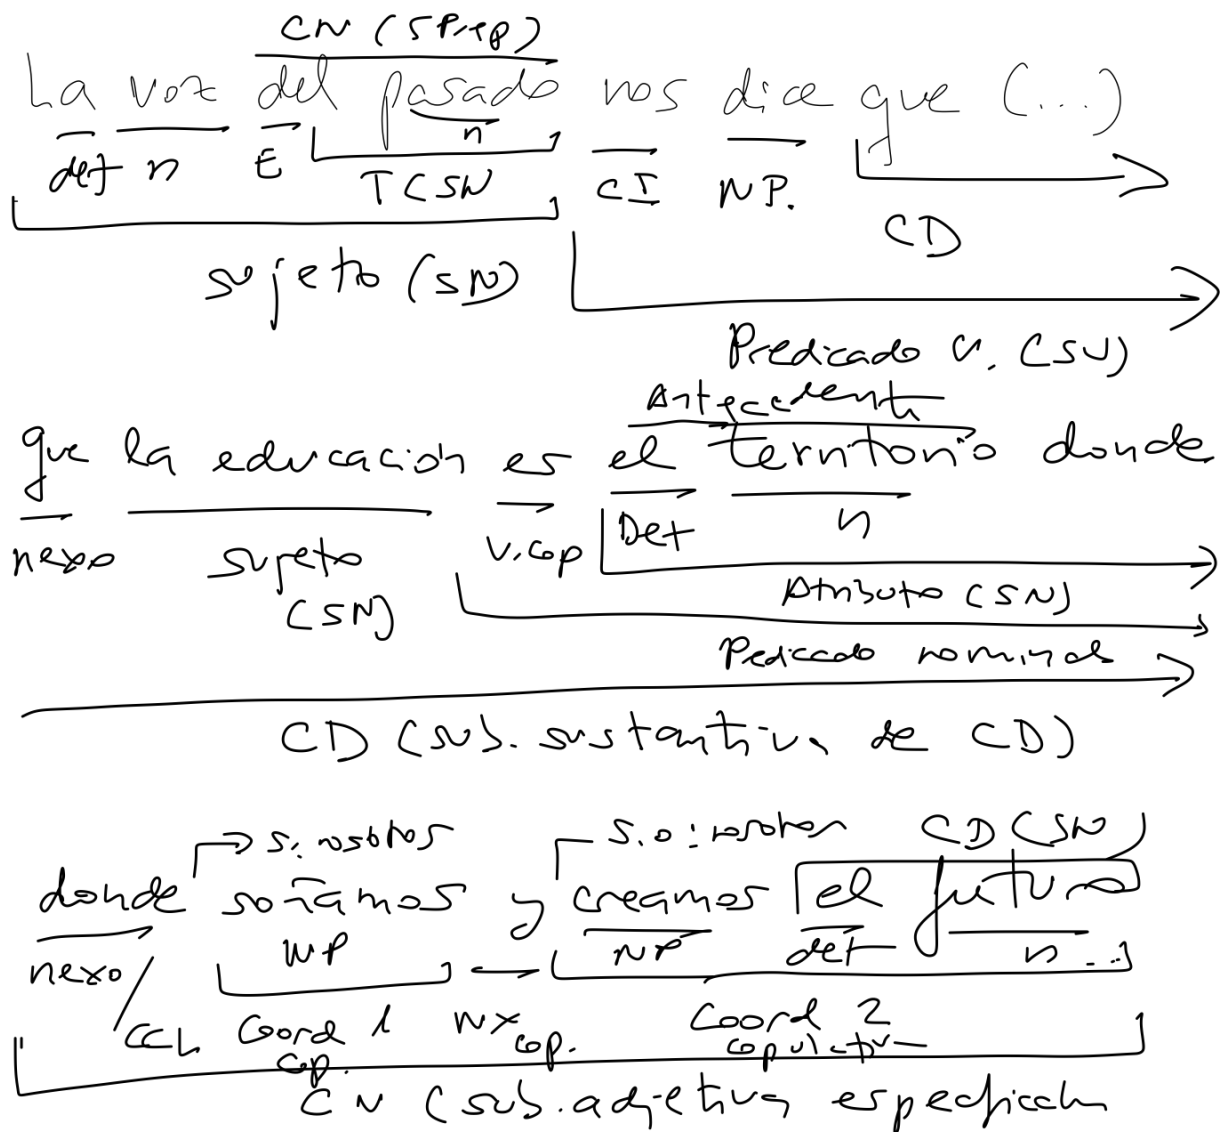 CN (SPrep)
La voz del pasado nos dice que (...)
n
det n E TCSN CI NP.
CD
sujeto (SN)
Predicado v. (SV)
Antecedente
que la educación es el territorio donde
nexo sujeto v.cop Det n
(SN) Atributo (SN)
Predicado nominal
CD (sub. sustantiva de CD)
S: nosotros S.o: nosotros CD (SN)
donde soñamos y creamos el futuro
nexo/ NP NP det n...
CCL Coord 1 NX cop. Coord 2
cop. copulativa
CN (sub. adjetiva especificativa